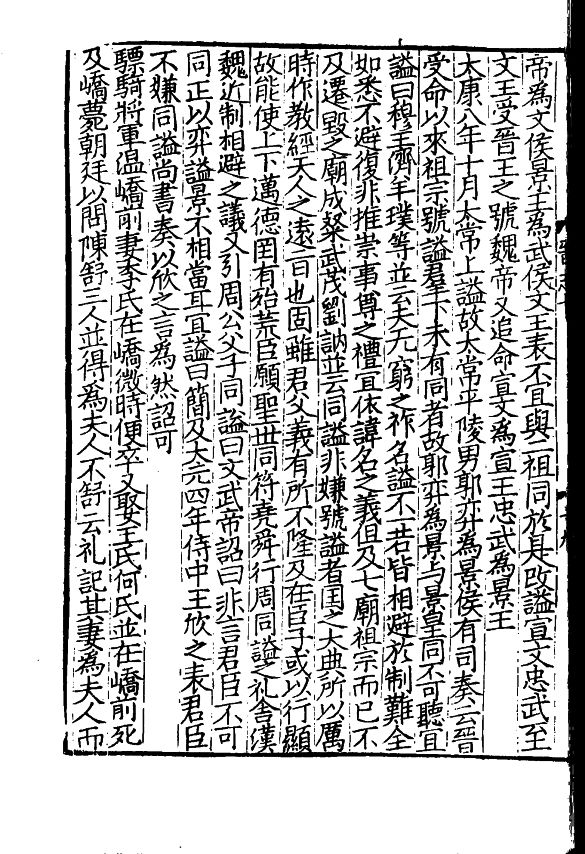 帝為文侯景王為武侯文王表不宜與二祖同於是改謚宣文忠武至
文王受晉王之號魏帝又追命宣文為宣王忠武為景王
太康八年十月太常上謚故太常平陵男郭弈為景侯有司奏云晉
受命以來祖宗號謚羣下未有同者故郭弈為景与景皇同不可聽宜
謚曰穆王濟羊璞等並云夫无窮之祚名謚不一若皆相避於制難全
如悉不避復非推崇事尊之禮宜依諱名之義但及七廟祖宗而已不
及遷毀之廟成粲武茂劉訥並云同謚非嫌號謚者国之大典所以厲
時作教經天人之遠旨也固雖君父義有所不隆及在臣子或以行顯
故能使上下邁德罔有殆荒臣願聖丗同符堯舜行周同謚之礼舍漢
魏近制相避之議又引周公父子同謚曰文武帝詔曰非言君臣不可
同正以弈謚景不相當耳宜謚曰簡及太元四年侍中王欣之表君臣
不嫌同謚尚書奏以欣之言為然詔可
驃騎將軍温嶠前妻李氏在嶠微時便卒又娶王氏何氏並在嶠前死
及嶠薨朝廷以問陳舒三人並得為夫人不舒云礼記其妻為夫人而